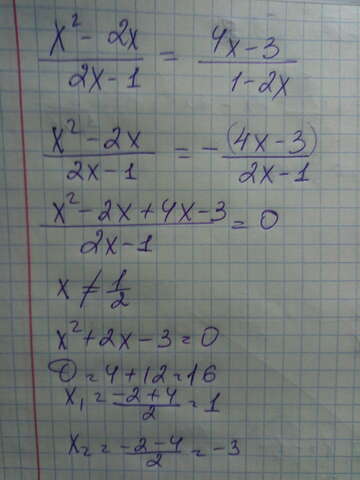 x² - 2x / 2x - 1 = 4x - 3 / 1 - 2x
x² - 2x / 2x - 1 = - (4x - 3) / 2x - 1
x² - 2x + 4x - 3 / 2x - 1 = 0
x ≠ 1/2
x² + 2x - 3 = 0
D = 4 + 12 = 16
x₁ = -2 + 4 / 2 = 1
x₂ = -2 - 4 / 2 = -3